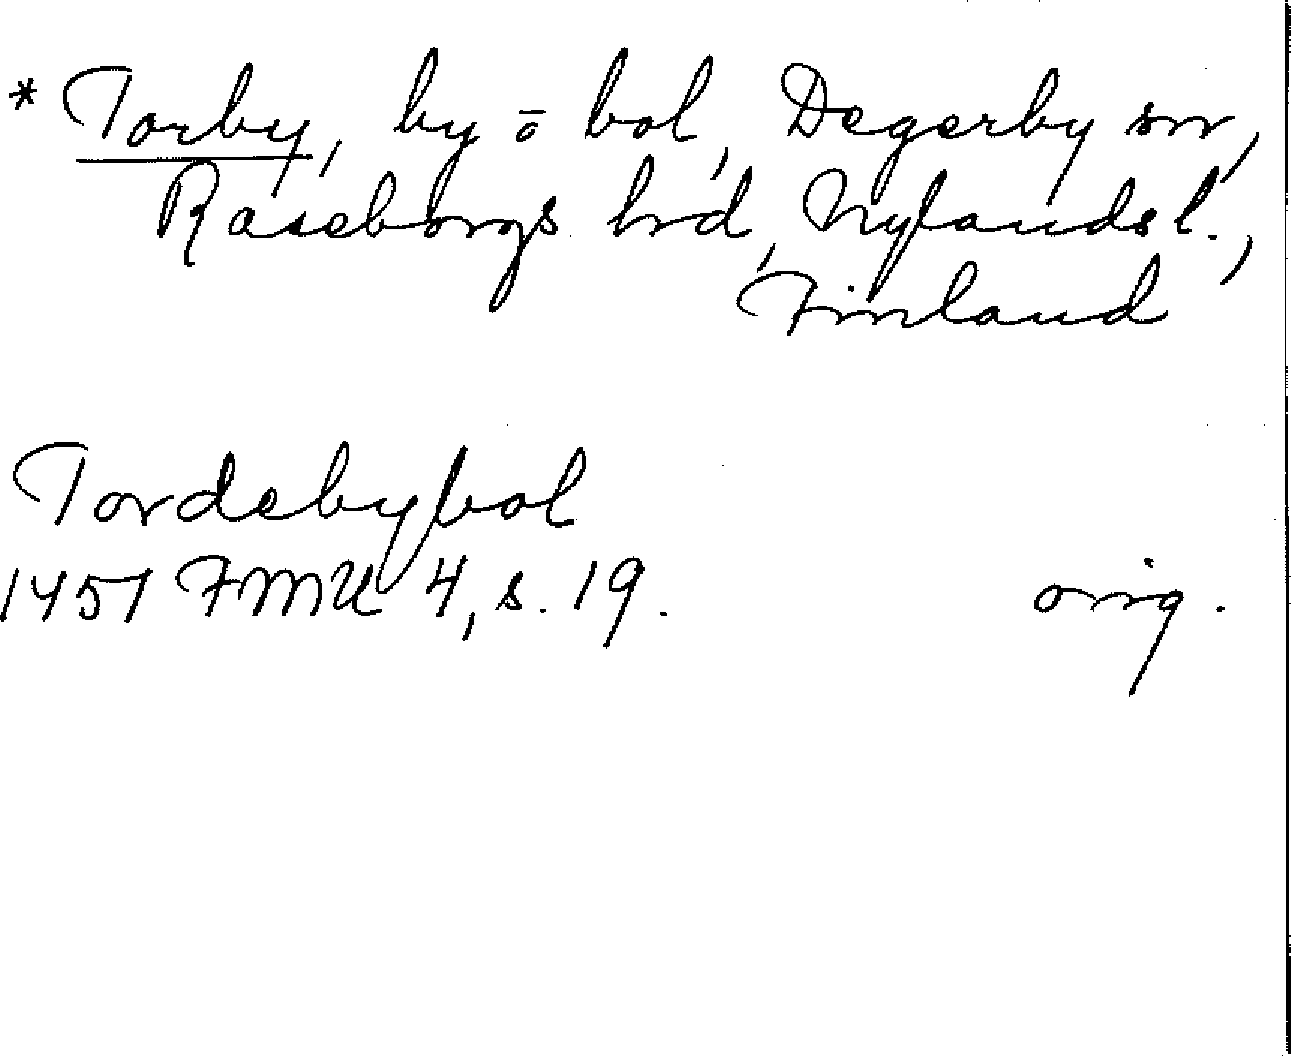 * Torby, by ō bol, Degerby sn,
Raseborgs hrd, Nylands l.,
Finland
Tordebybol
1451 FMU 4, s. 19.
orig.